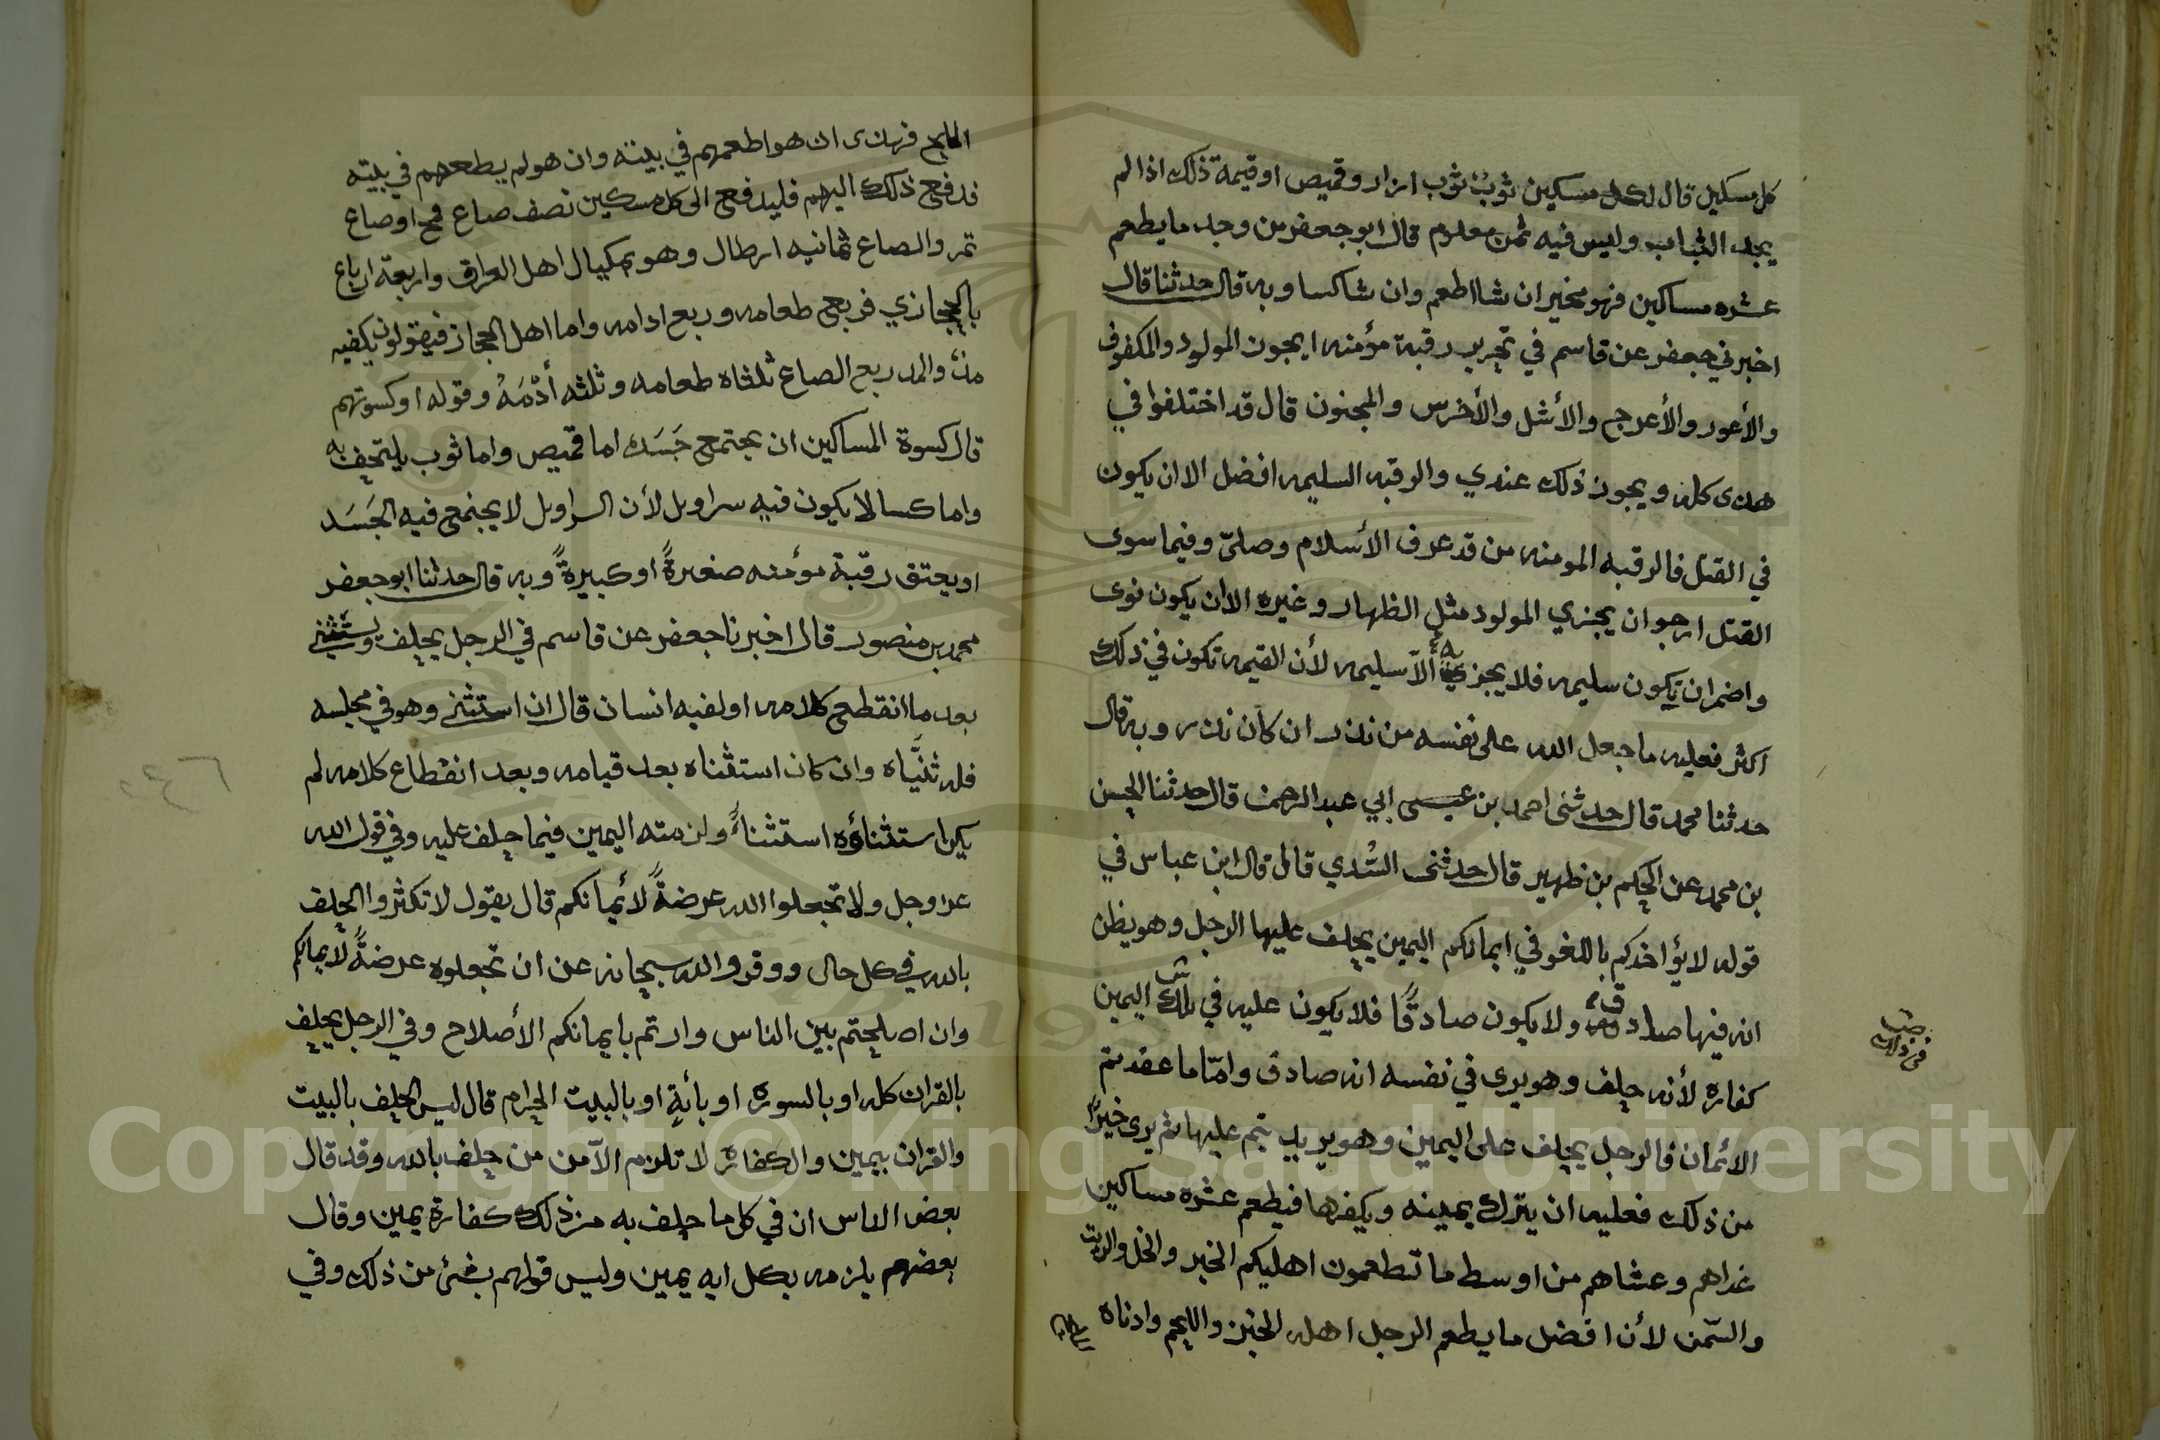 كل مسكين قال لكل مسكين ثوب ثوب ازار وقميص او قيمة ذلك اذا لم
يجد الثياب وليس فيه ثمن معلوم قال ابو جعفر من وجد ما يطعم
عشره مساكين فهو مخير ان شا اطعم وان شا كسا وبه قال حدثنا قال
اخبرني جعفر عن قاسم في تحرير رقبة مؤمنه ايجوز المولود والمكفوف
والأعور والأعرج والأشل والأخرس والمجنون قال قد اختلفوا في
هذى كله ويجوز ذلك عندي والرقبه السليمه افضل الا ان يكون
في القتل فالرقبه المومنه من قد عرف الأسلام وصلىّ وفيما سوى
القتل ارجو ان يجزي المولود مثل الظهار وغيره الا ان يكون نوى
واضمر ان تكون سليمه فلا يجزي الاّ سليمه لأن القيمه تكون في ذلك
اكثر فعليه ما جعل الله على نفسه من نذر ان كان نذر وبه قال
حدثنا محمد قال حدثنى احمد بن عيسى ابي عبد الرحمن قال حدثنا الحسن
بن محمد عن الحكم بن ظهير قال حدثنى السّدي قال قال ابن عباس في
قوله لا يؤاخذكم باللغو في ايمانكم اليمين يحلف عليها الرجل وهو يظن
انه فيها صادق ولا يكون صادقًا فلا يكون عليه في تلك اليمين
كفاره لأنه حلف وهو يرى في نفسه انه صادق وامّا ما عقدتم
الائمان فالرجل يحلف على اليمين وهو يريد يتم عليها ثم يرى خيرًا
من ذلك فعليه ان يترك يمينه ويكفرها فيطعم عشره مساكين
غداهم وعشاهم من اوسط ما تطعمون اهليكم الخبز والخل والزيت
والسّمن لأن افضل ما يطعم الرجل اهله الخبز واللحم وادناه
الملح فهذى ان هو اطعمهم في بيته وان هو لم يطعمهم في بيته
فدفع ذلك اليهم فليدفع الى كل مسكين نصف صاع قمح او صاع
تمر والصاع ثمانيه ارطال وهو بمكيال اهل العراق واربعة ارباع
بالحجازي فربع طعامه وربع ادامه واما اهل الحجاز فيقولون يكفيه
مدٌ والمد ربع الصاع ثلثاه طعامه وثلثه أدْمَهُ وقوله او كسوتهم
قال كسوة المساكين ان يجتمع جَسَده اما قميص واما ثوب يلتحف به
واما كسا لا يكون فيه سراويل لأن السراويل لا يجتمع فيه الجَسَد
او يعتق رقبة مؤمنه صغيرةً او كبيرةً وبه قال حدثنا ابو جعفر
محمد بن منصور قال اخبرنا جعفر عن قاسم في الرجل يحلف ويستثني
بعد ما انقطع كلامه او لقيه انسان قال ان استثنى وهو في مجلسه
فله ثنيَّاه وان كان استثناه بعد قيامه وبعد انقطاع كلامه لم
يكن استثناؤه استثناءً ولزمته اليمين فيما حلف عليه وفي قول الله
عز وجل ولا تجعلوا الله عرضةً لأيمانكم قال يقول لا تكثروا الحلف
بالله في كل حال ووقروا الله سبحانه عن ان تجعلوه عرضةً لايمانكم
وان اصلحتم بين الناس واردتم بايمانكم الأصلاح وفي الرجل يحلف
بالقران كله او بالسوره او بأيةٍ او بالبيت الحرام قال ليس الحلف بالبيت
والقران بيمين والكفاره لا تلزم الاّ من من حلف بالله وقد قال
بعض الناس ان في كل ما حلف به من ذلك كفارة يمين وقال
بعضهم يلزمه بكل ايه يمين وليس قولهم بشئ من ذلك وفي
Copyright © King Saud University